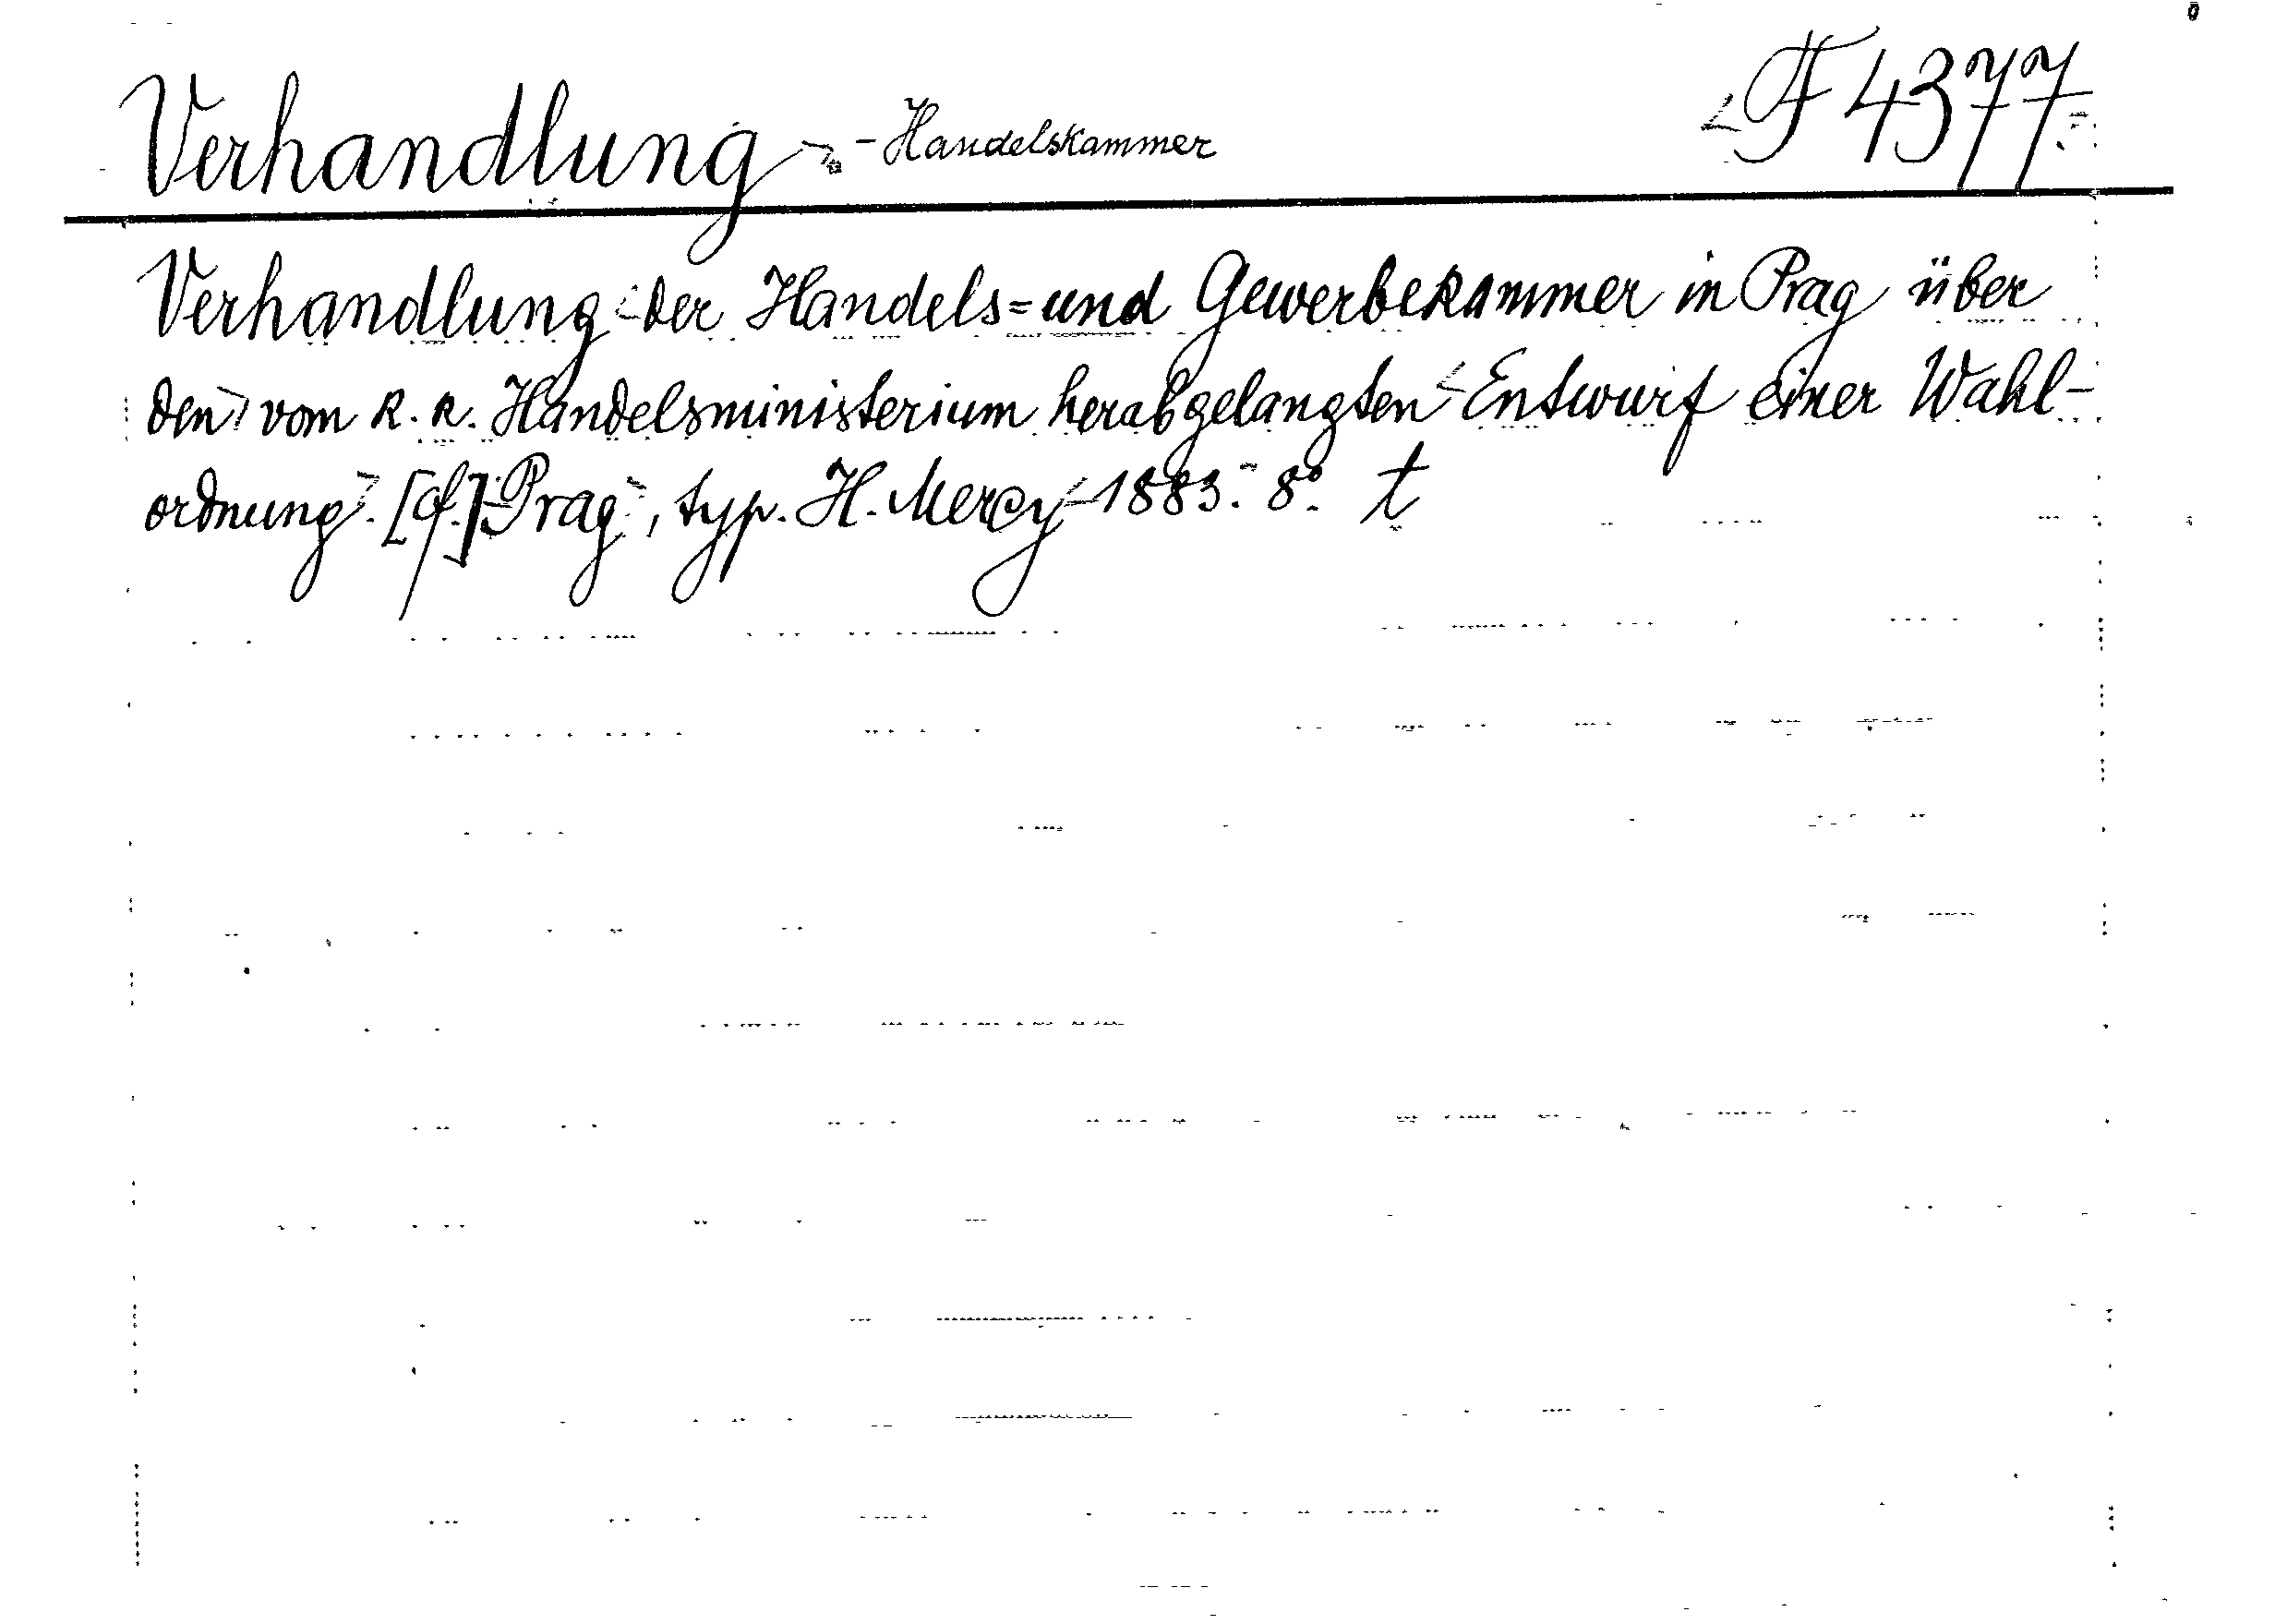 Verhandlung - Handelskammer F 4377
Verhandlung der Handels= und Gewerbekammer in Prag über
den vom k. k. Handelsministerium herabgelangten Entwurf einer Wahl-
ordnung. [cf.] Prag, typ. H. Mercy 1883. 8°. t